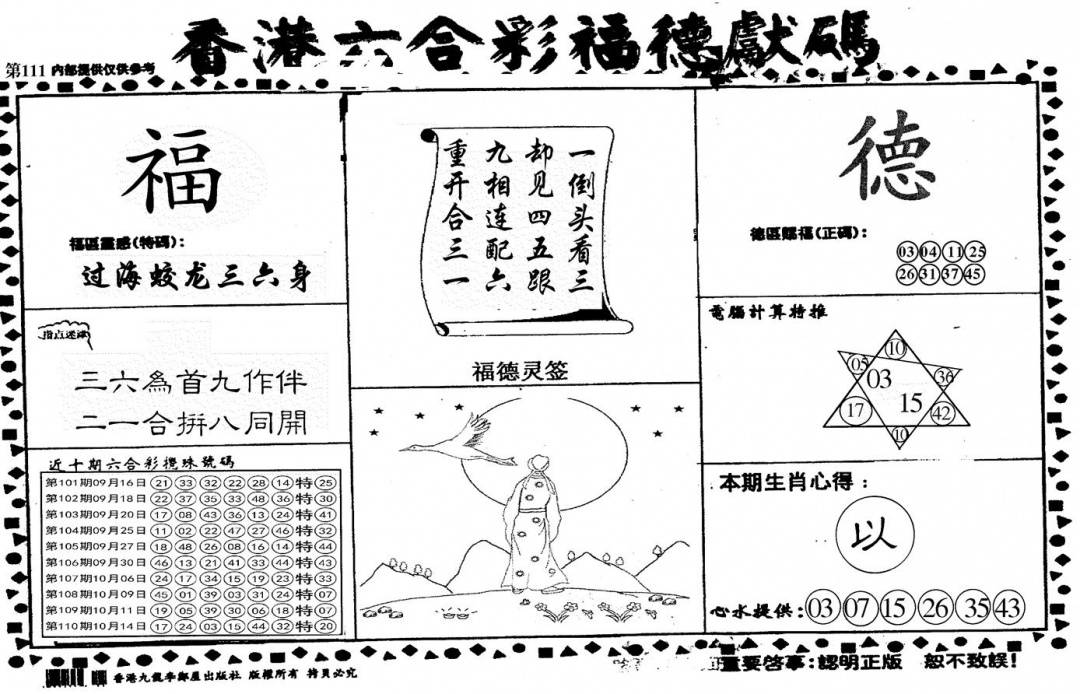 香港六合彩福德獻碼
第111 内部提供仅供参考
福
福區靈感(特碼):
过海蛟龙三六身
指点迷津
三六為首九作伴
二一合拚八同開
近十期六合彩攪珠號碼
第101期09月16日 21 33 32 22 28 14 特 25
第102期09月18日 22 37 35 33 48 36 特 30
第103期09月20日 17 08 43 36 13 24 特 41
第104期09月25日 11 02 22 47 27 46 特 32
第105期09月27日 18 48 26 08 16 14 特 44
第106期09月30日 46 13 21 41 33 44 特 43
第107期10月06日 24 17 34 15 19 23 特 33
第108期10月09日 45 01 39 03 31 24 特 07
第109期10月11日 19 05 39 30 06 18 特 07
第110期10月14日 17 24 03 15 44 32 特 20
一倒头看三
却见四五跟
九相连配六
重开合三一
福德灵签
德
德區賜福(正碼):
03 04 11 25
26 31 37 45
電腦計算特推
10
05 03 36
17 15 42
10
本期生肖心得:
以
心水提供:03 07 15 26 35 43
香港九龍李鄭屋出版社 版權所有 拷貝必究
重要啓事:認明正版 恕不致誤!